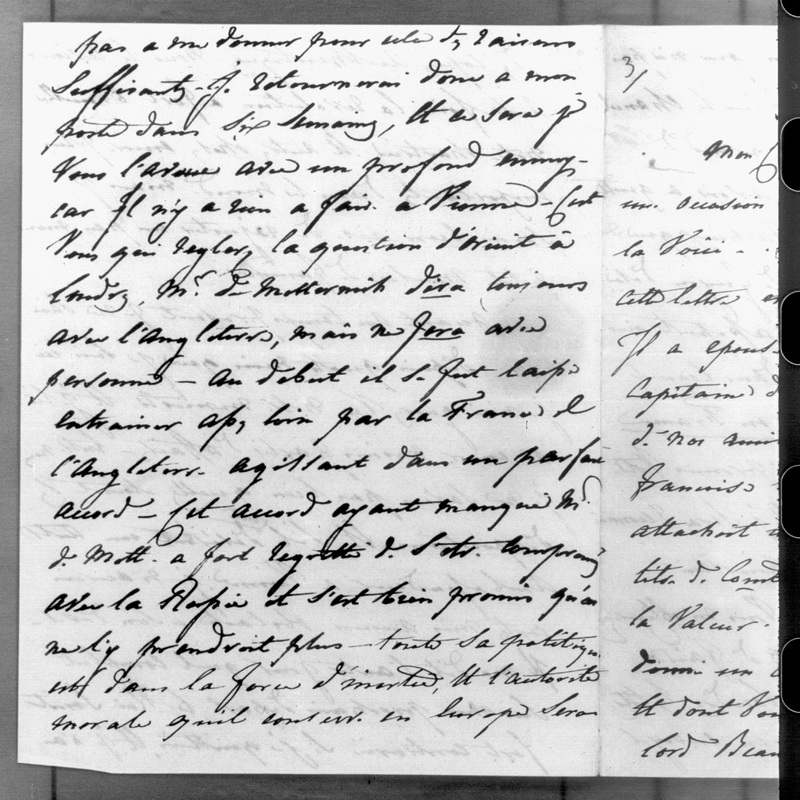 pas a me donner pour cela des raisons
suffisantes - Je retournerai donc a mon
poste dans six semaines, et ce sera je
vous l'avoue avec un profond ennuy -
car Il n'y a rien a faire a Vienne - C'est
Vous qui reglez la question d'orient à
londres, Mr. De Metternich dira toujours
avec l'Angleterre, mais ne fera avec
personne - au debut il se fut laissé
entrainer assez loin par la France et
l'Angleterre agissant dans un parfait
accord - Cet accord ayant manqué Mr.
de Mett. a fort regretté de s'etre compromis
avec la Russie et s'est bien promis qu'on
ne l'y prendroit plus - toute sa politique
est dans la force d'inertie, et l'autorité
morale qu'il conserve en Europe sera
3/
Mon
une occasion
la Voici -
cette lettre
Il a epousé
Capitaine
de nos amis
francoise
attachoit
titre de Comte
la Valeur.
donné un
et dont Vous
lord Beau